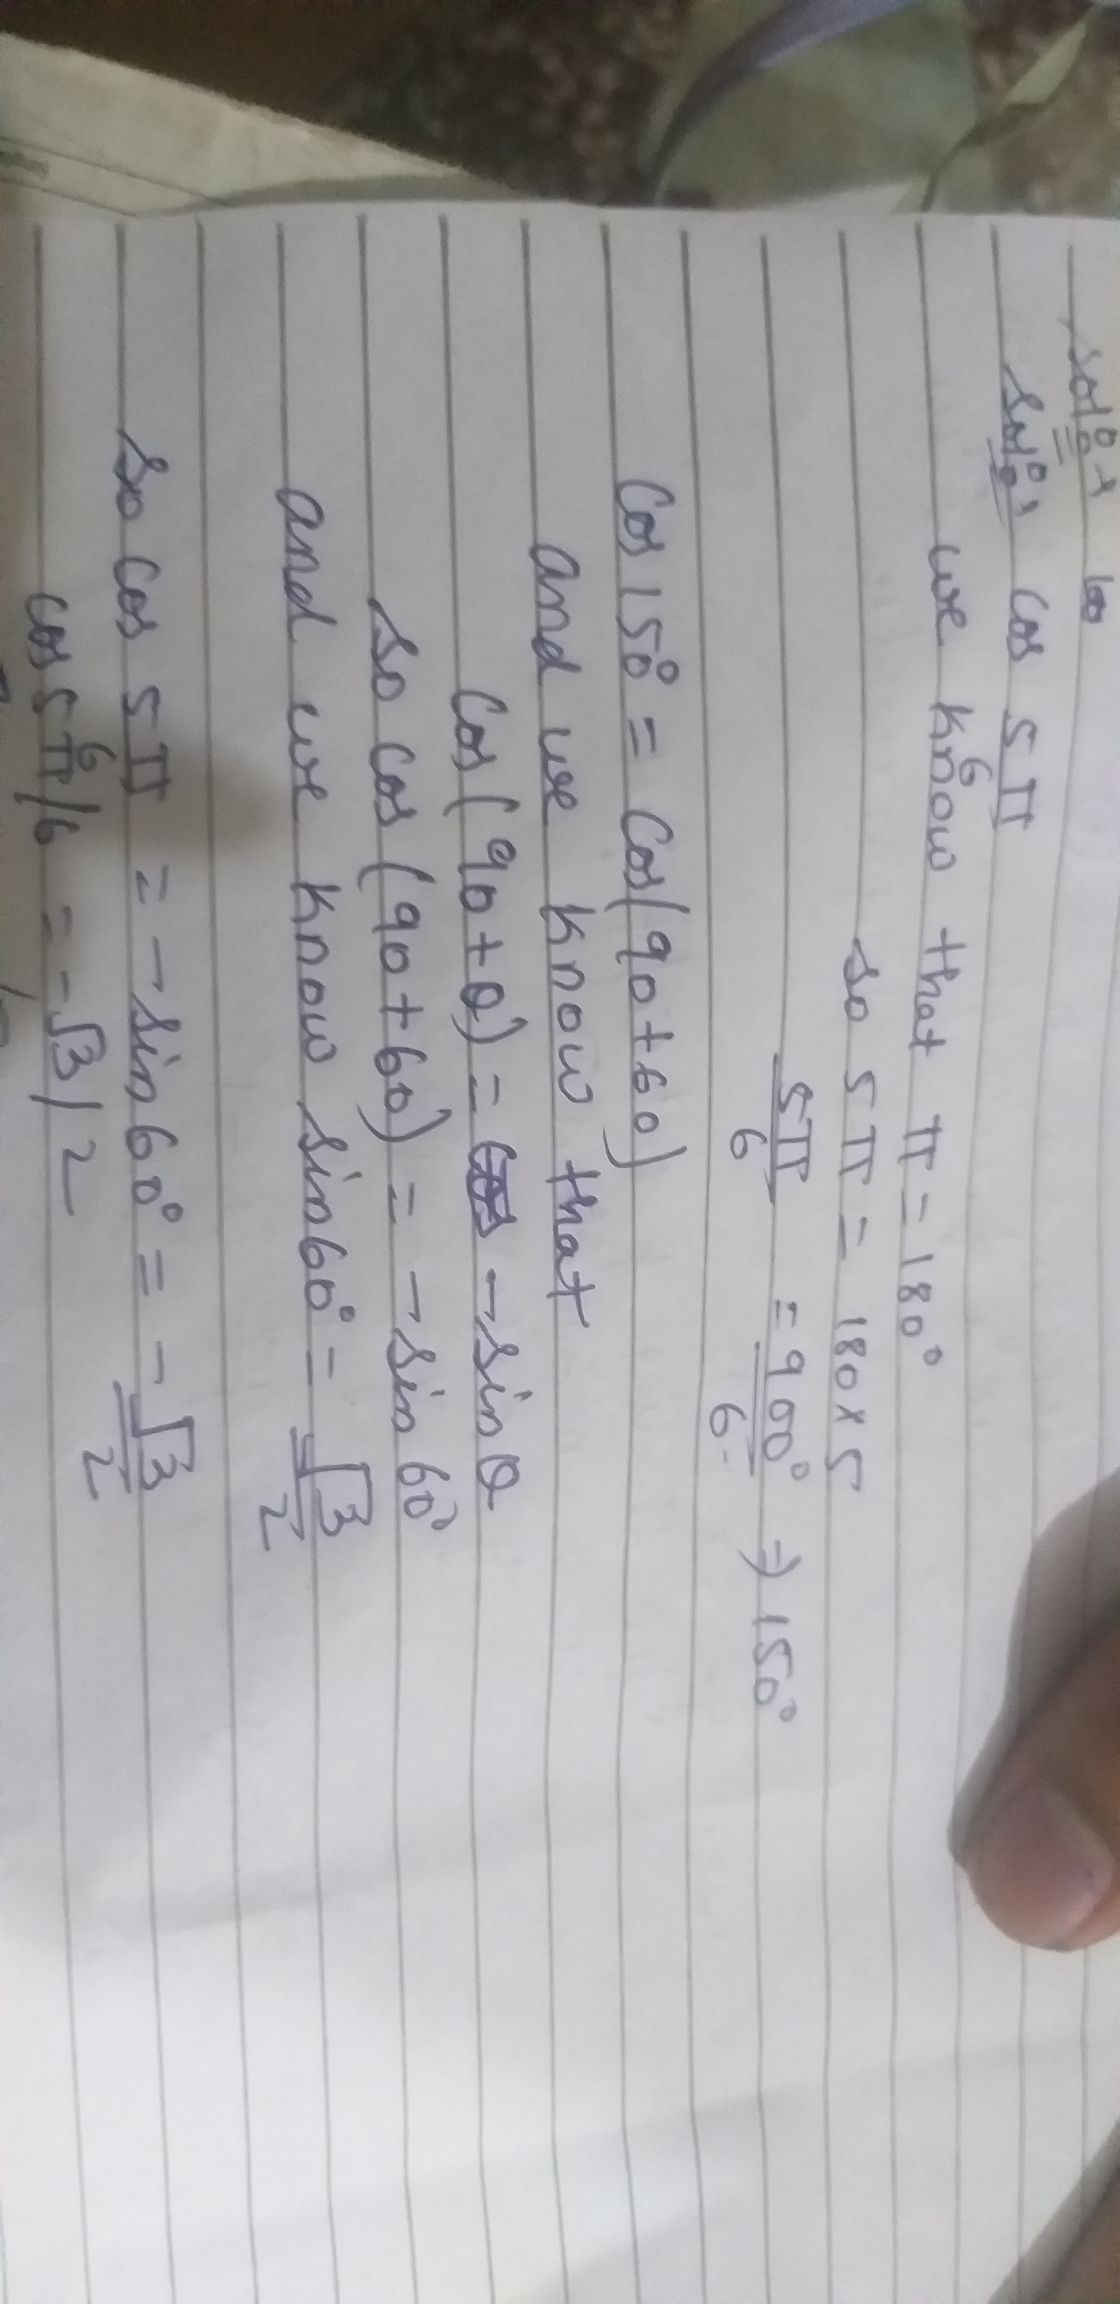 Sol:
Sol: cos 5π/6
we know that π = 180°
so 5π = 180 x 5
5π/6 = 900°/6 ⇒ 150°
Cos 150° = Cos(90+60)
and we know that
Cos(90+θ) = -sinθ
so cos(90+60) = -sin 60°
and we know sin60° = √3/2
so cos 5π/6 = -sin60° = -√3/2
cos 5π/6 = -√3/2